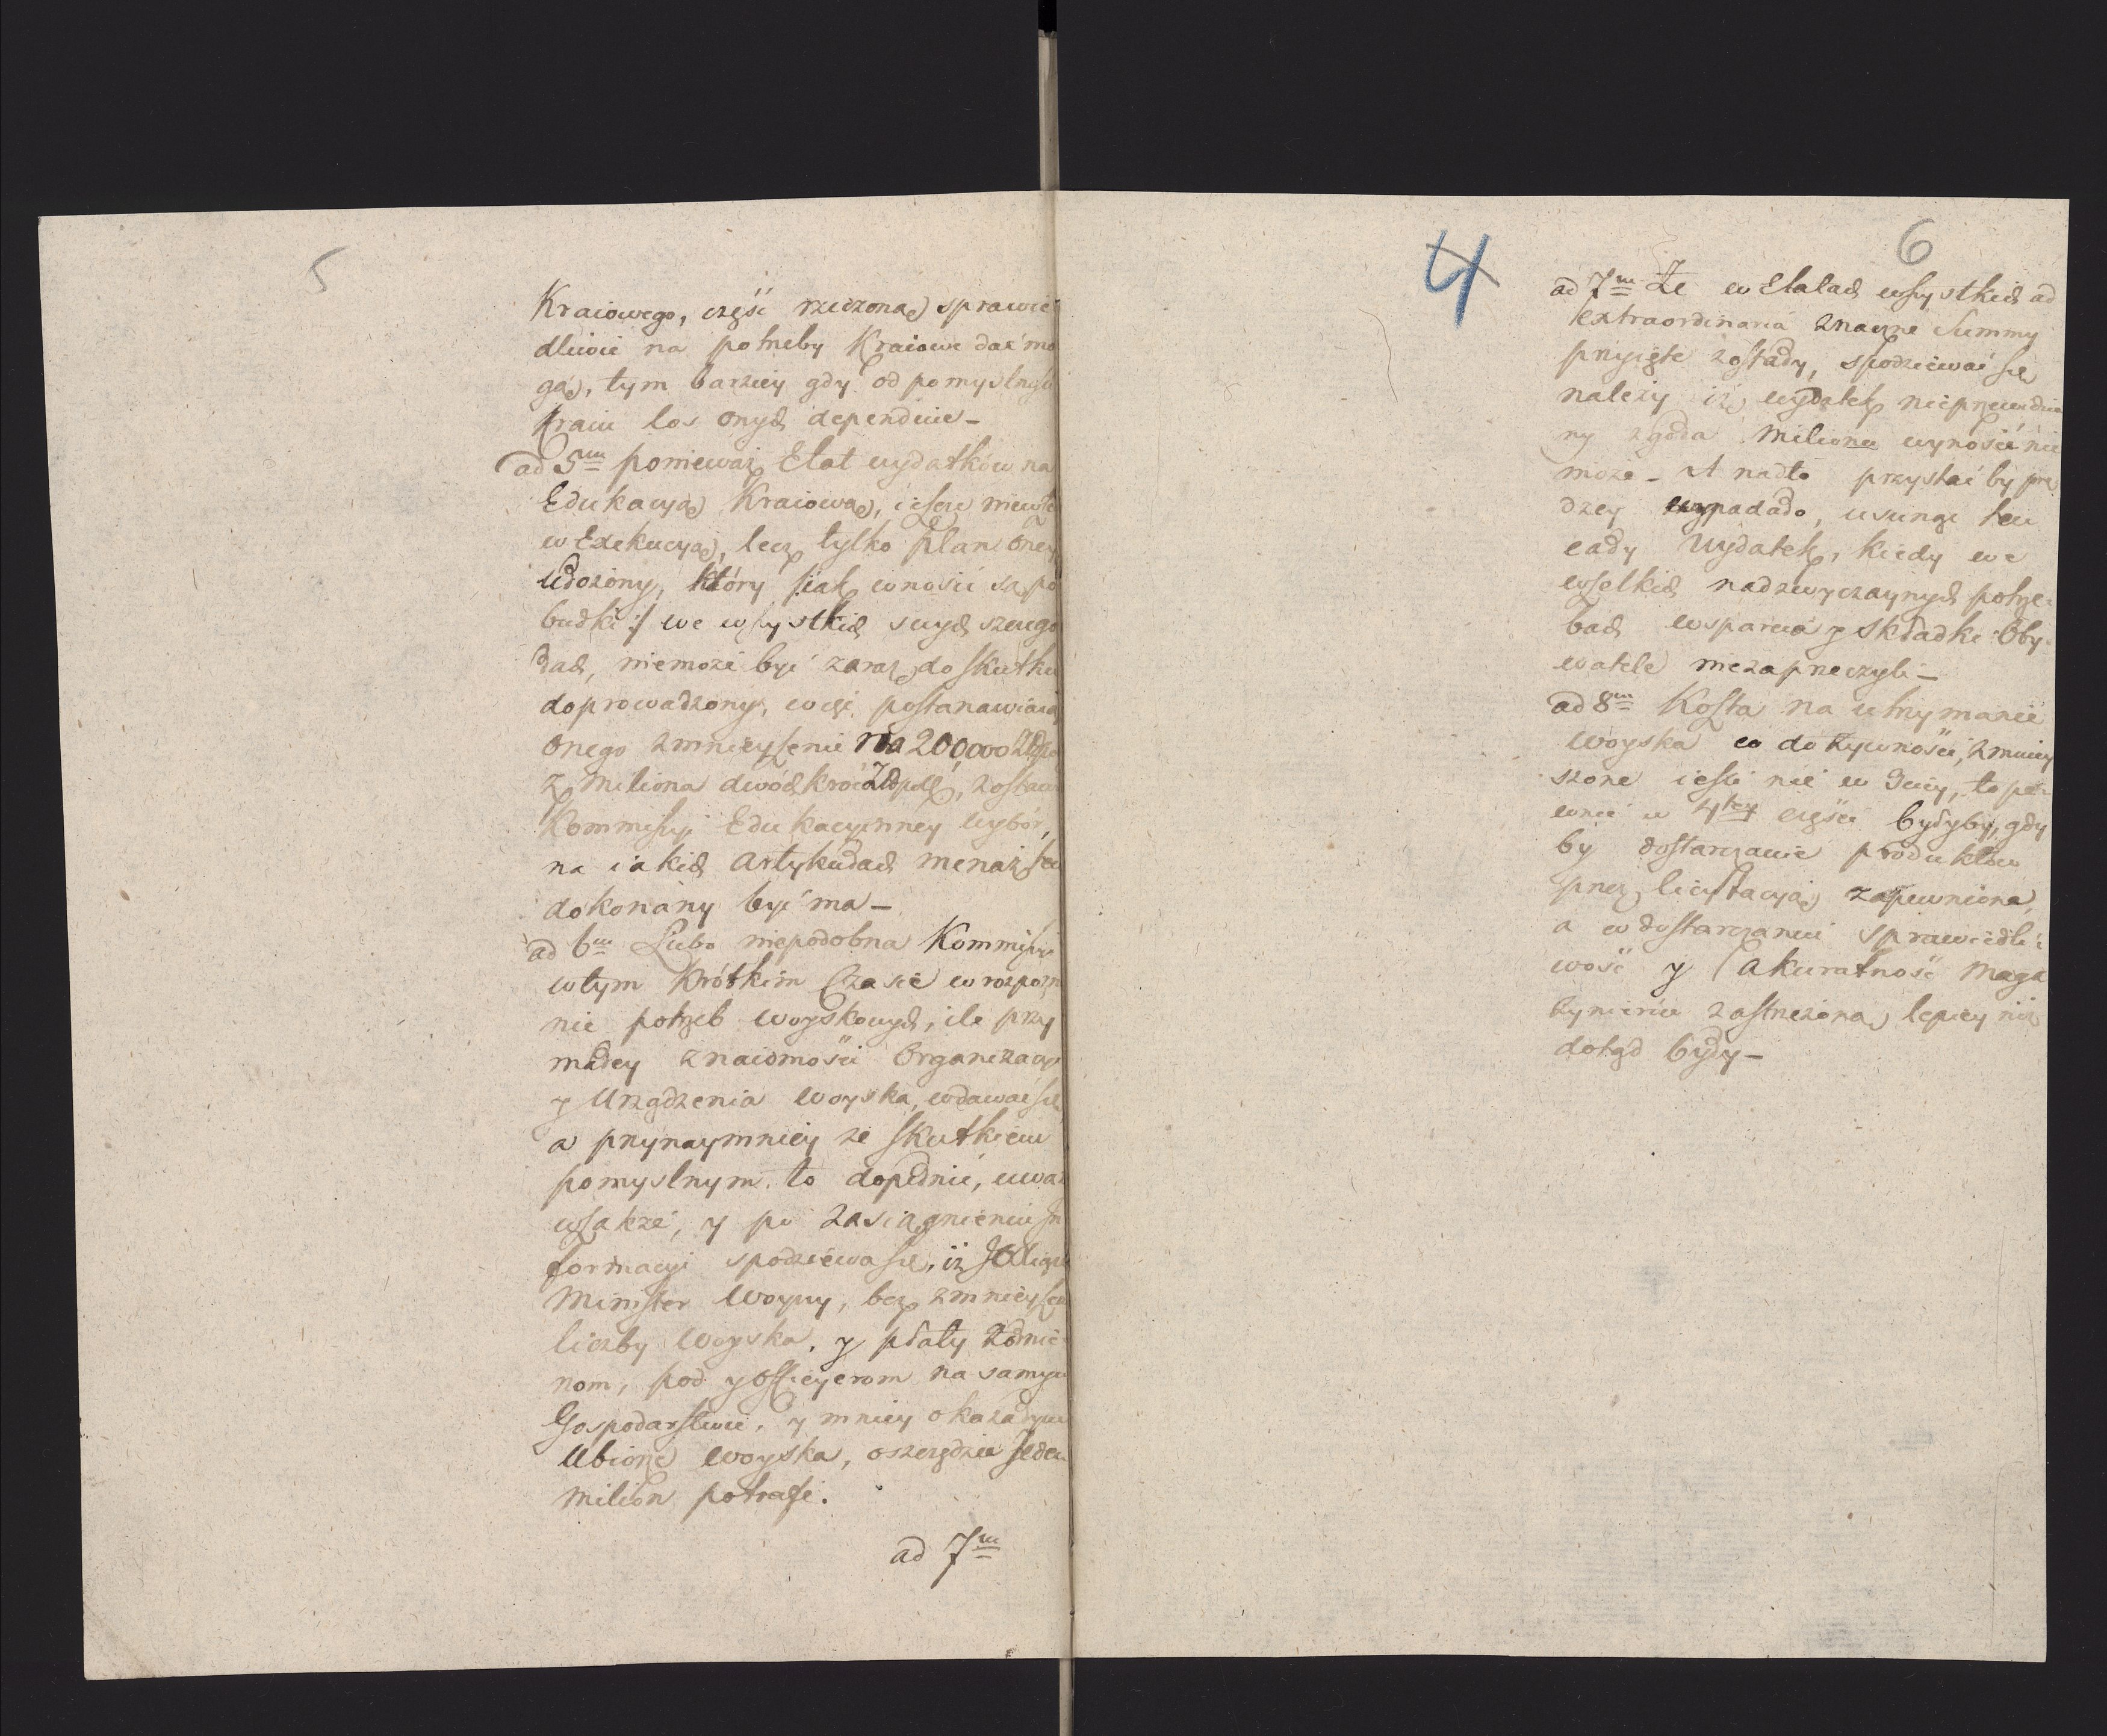 5
Kraiowego, część rzeczoną sprawie
dliwie na potrzeby Kraiowe dać mo
gą, tym barziey gdy od pomyslnośc
Kraiu los onych dependuie –
ad 5um ponieważ Etat wydatków na
Edukacyą Kraiową, ieszcze niewsze
w Exekucyą, lecz tylko plan oney
ułożony, który /:iak wnosić są po
budki:/ we wszystkich swych szczegó
łach, niemoże być zaraz do skutku
doprowadzony, więc postanawiaią
onego zmnieyszenie na 200,000
z miliona dwóchkroć Złpol, zostaw
Kommissyi Edukacyinney wybór,
na iakich Artykułach menaż ten
dokonany być ma –
ad 6um Lubo niepodobna Kommissyi
w tym krótkim Czasie w rozpozn
nie potrzeb woyskowych, ile przy
małey znaiomości Organizacyi
y Urządzenia woyska, wdawać się
a przynaymniey ze skutkiem
pomyslnym to dopełnić, uważ
wszakże, y po zasiągnieniu In
formacyi spodziewa się, iż
Minister Woyny, bez zmnieysze
liczby woyska, y płaty Żołnie
rzom, pod y Officyerom na samym
Gospodarstwie, y mniey okazałym
Ubiorze woyska, oszczędzić jeden
milion potrafi.
ad 7m
4
6
ad 7m Że w Etatach wszystkich ad
extraordinaria znaczne Summy
przyięte zostały, spodziewać się
należy iż wydatek nieprzewidzia
ny zgoła miliona wynosić nie
może – A nadto przystać by prę
dzey wypadało, usunąć ten
cały Wydatek, kiedy we
wszelkich nadzwyczaynych potrze
bach wsparcia y składki Oby
watele niezaprzeczyli –
ad 8m Koszta na utrzymanie
woyska co do żywności, zmniey
szone ieśli nie w 3ciey, to pe
wnie w 4tey części byłyby, gdy
by dostarczanie produktów
przez licytacyą zapewnione,
a w dostarczaniu sprawiedli
wość y akuratność Maga
zynierów zastrzeżona, lepiey niż
dotąd były –